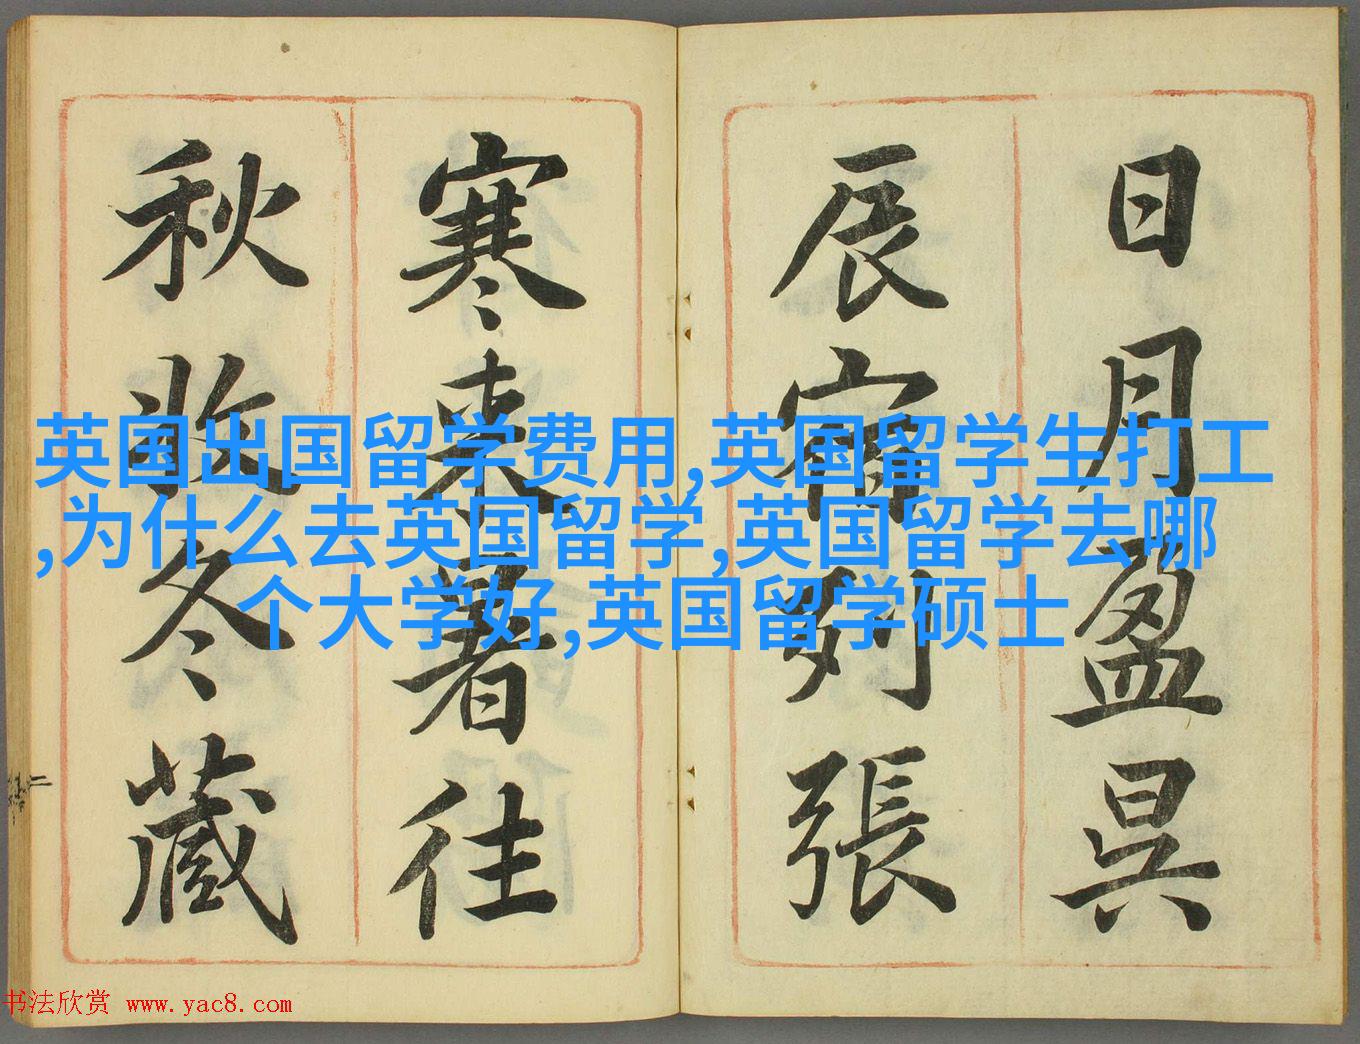 日月盈昃
辰宿列張
寒來暑往
秋收冬藏
英国出国留学费用,英国留学生打工
,为什么去英国留学,英国留学去哪
个大学好,英国留学硕士
二
书法欣赏 www.yac8.com